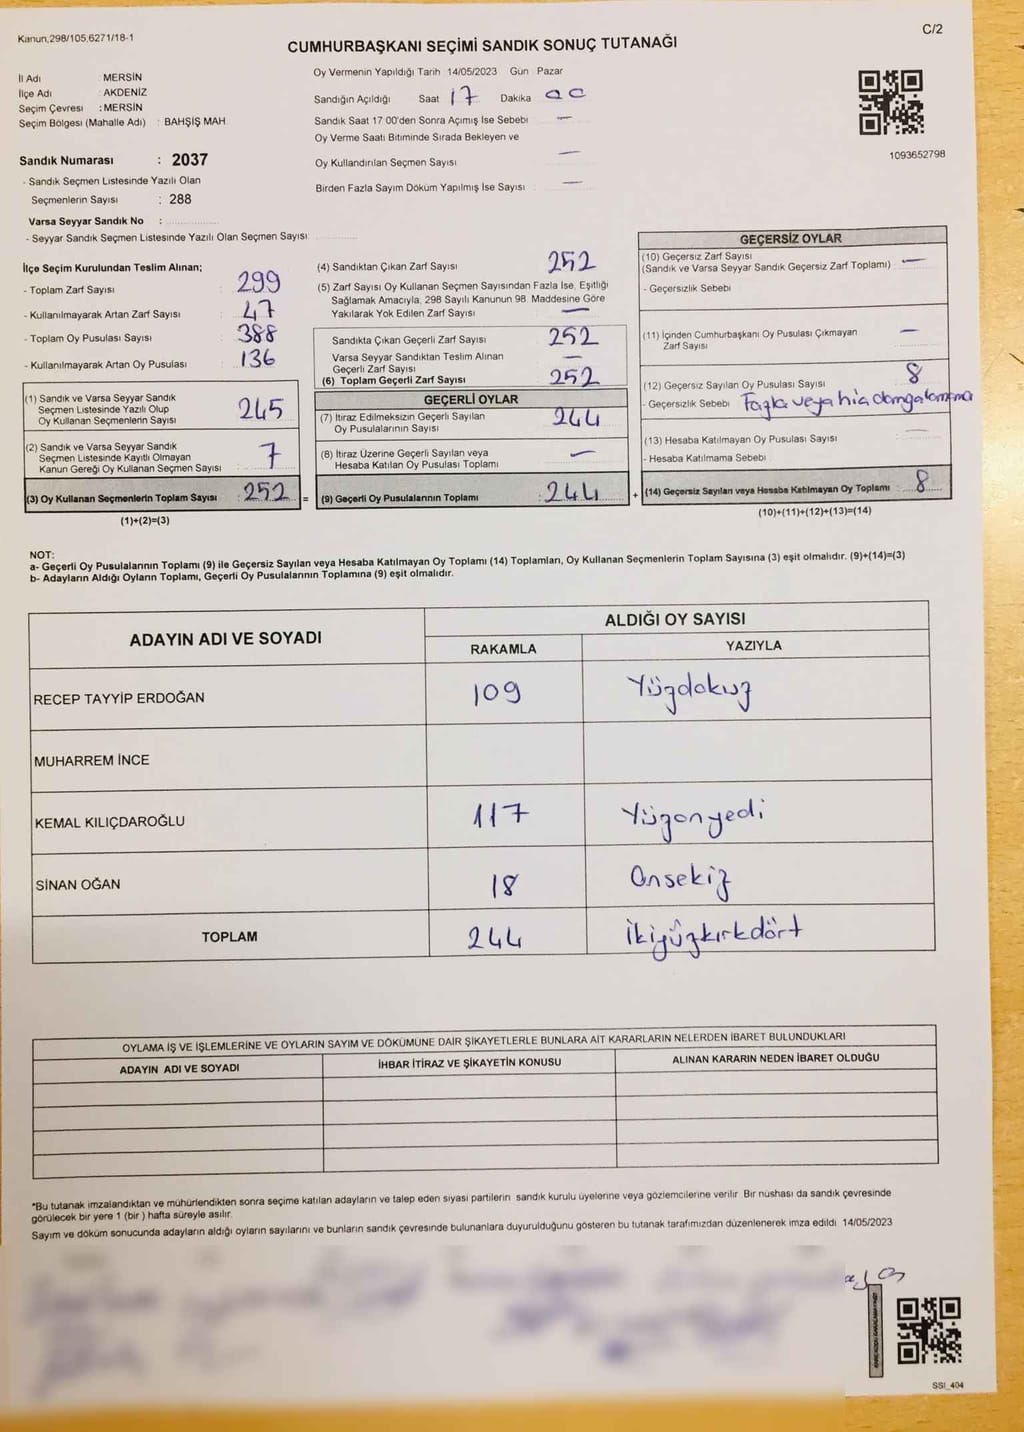 Kanun,298/105,6271/18-1
C/2
CUMHURBAŞKANI SEÇİMİ SANDIK SONUÇ TUTANAĞI
İl Adı : MERSİN
İlçe Adı : AKDENİZ
Seçim Çevresi : MERSİN
Seçim Bölgesi (Mahalle Adı) : BAHŞİŞ MAH
Sandık Numarası : 2037
- Sandık Seçmen Listesinde Yazılı Olan
Seçmenlerin Sayısı : 288
Varsa Seyyar Sandık No :
- Seyyar Sandık Seçmen Listesinde Yazılı Olan Seçmen Sayısı:
Oy Vermenin Yapıldığı Tarih 14/05/2023 Gün Pazar
Sandığın Açıldığı Saat 17 Dakika 00
Sandık Saat 17:00'den Sonra Açımış İse Sebebi —
Oy Verme Saati Bitiminde Sırada Bekleyen ve
Oy Kullandırılan Seçmen Sayısı —
Birden Fazla Sayım Döküm Yapılmış İse Sayısı —
1093652798
İlçe Seçim Kurulundan Teslim Alınan;
- Toplam Zarf Sayısı : 299
- Kullanılmayarak Artan Zarf Sayısı : 47
- Toplam Oy Pusulası Sayısı : 388
- Kullanılmayarak Artan Oy Pusulası : 136
(1) Sandık ve Varsa Seyyar Sandık
Seçmen Listesinde Yazılı Olup
Oy Kullanan Seçmenlerin Sayısı : 245
(2) Sandık ve Varsa Seyyar Sandık
Seçmen Listesinde Kayıtlı Olmayan
Kanun Gereği Oy Kullanan Seçmen Sayısı : 7
(3) Oy Kullanan Seçmenlerin Toplam Sayısı : 252
(1)+(2)=(3)
(4) Sandıktan Çıkan Zarf Sayısı : 252
(5) Zarf Sayısı Oy Kullanan Seçmen Sayısından Fazla İse, Eşitliği
Sağlamak Amacıyla, 298 Sayılı Kanunun 98. Maddesine Göre
Yakılarak Yok Edilen Zarf Sayısı : —
Sandıkta Çıkan Geçerli Zarf Sayısı : 252
Varsa Seyyar Sandıktan Teslim Alınan
Geçerli Zarf Sayısı : —
(6) Toplam Geçerli Zarf Sayısı : 252
GEÇERLİ OYLAR
(7) İtiraz Edilmeksizin Geçerli Sayılan
Oy Pusulalarının Sayısı : 244
(8) İtiraz Üzerine Geçerli Sayılan veya
Hesaba Katılan Oy Pusulası Toplamı : —
= (9) Geçerli Oy Pusulalarının Toplamı : 244
GEÇERSİZ OYLAR
(10) Geçersiz Zarf Sayısı
(Sandık ve Varsa Seyyar Sandık Geçersiz Zarf Toplamı) —
- Geçersizlik Sebebi
(11) İçinden Cumhurbaşkanı Oy Pusulası Çıkmayan
Zarf Sayısı —
(12) Geçersiz Sayılan Oy Pusulası Sayısı 8
- Geçersizlik Sebebi Fazla veya hiç damgalanmama
(13) Hesaba Katılmayan Oy Pusulası Sayısı —
- Hesaba Katılmama Sebebi
+ (14) Geçersiz Sayılan veya Hesaba Katılmayan Oy Toplamı : 8
(10)+(11)+(12)+(13)=(14)
NOT:
a- Geçerli Oy Pusulalarının Toplamı (9) ile Geçersiz Sayılan veya Hesaba Katılmayan Oy Toplamı (14) Toplamları, Oy Kullanan Seçmenlerin Toplam Sayısına (3) eşit olmalıdır. (9)+(14)=(3)
b- Adayların Aldığı Oyların Toplamı, Geçerli Oy Pusulalarının Toplamına (9) eşit olmalıdır.
ADAYIN ADI VE SOYADI
ALDIĞI OY SAYISI
RAKAMLA YAZIYLA
RECEP TAYYİP ERDOĞAN 109 Yüzdokuz
MUHARREM İNCE
KEMAL KILIÇDAROĞLU 117 Yüzonyedi
SİNAN OĞAN 18 Onsekiz
TOPLAM 244 İkiyüzkırkdört
OYLAMA İŞ VE İŞLEMLERİNE VE OYLARIN SAYIM VE DÖKÜMÜNE DAİR ŞİKAYETLERLE BUNLARA AİT KARARLARIN NELERDEN İBARET BULUNDUKLARI
ADAYIN ADI VE SOYADI İHBAR İTİRAZ VE ŞİKAYETİN KONUSU ALINAN KARARIN NEDEN İBARET OLDUĞU
*Bu tutanak imzalandıktan ve mühürlendikten sonra seçime katılan adayların ve talep eden siyasi partilerin sandık kurulu üyelerine veya gözlemcilerine verilir. Bir nüshası da sandık çevresinde
görülecek bir yere 1 (bir) hafta süreyle asılır.
Sayım ve döküm sonucunda adayların aldığı oyların sayılarını ve bunların sandık çevresinde bulunanlara duyurulduğunu gösteren bu tutanak tarafımızdan düzenlenerek imza edildi 14/05/2023
SSI_404